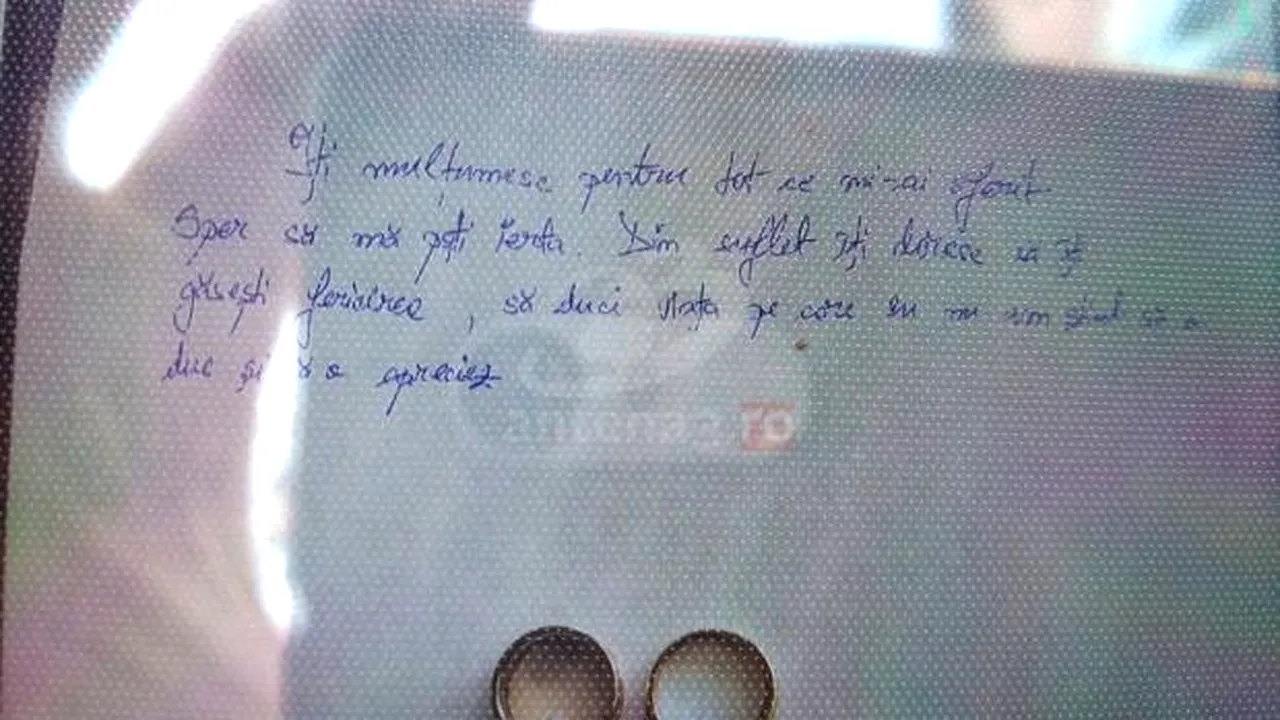 Îți mulțumesc pentru tot ce mi-ai oferit
Sper să mă poți ierta. Din suflet îți doresc să îți
găsești fericirea, să duci viața pe care eu nu am știut să o
duc și să o apreciez
antena3.ro